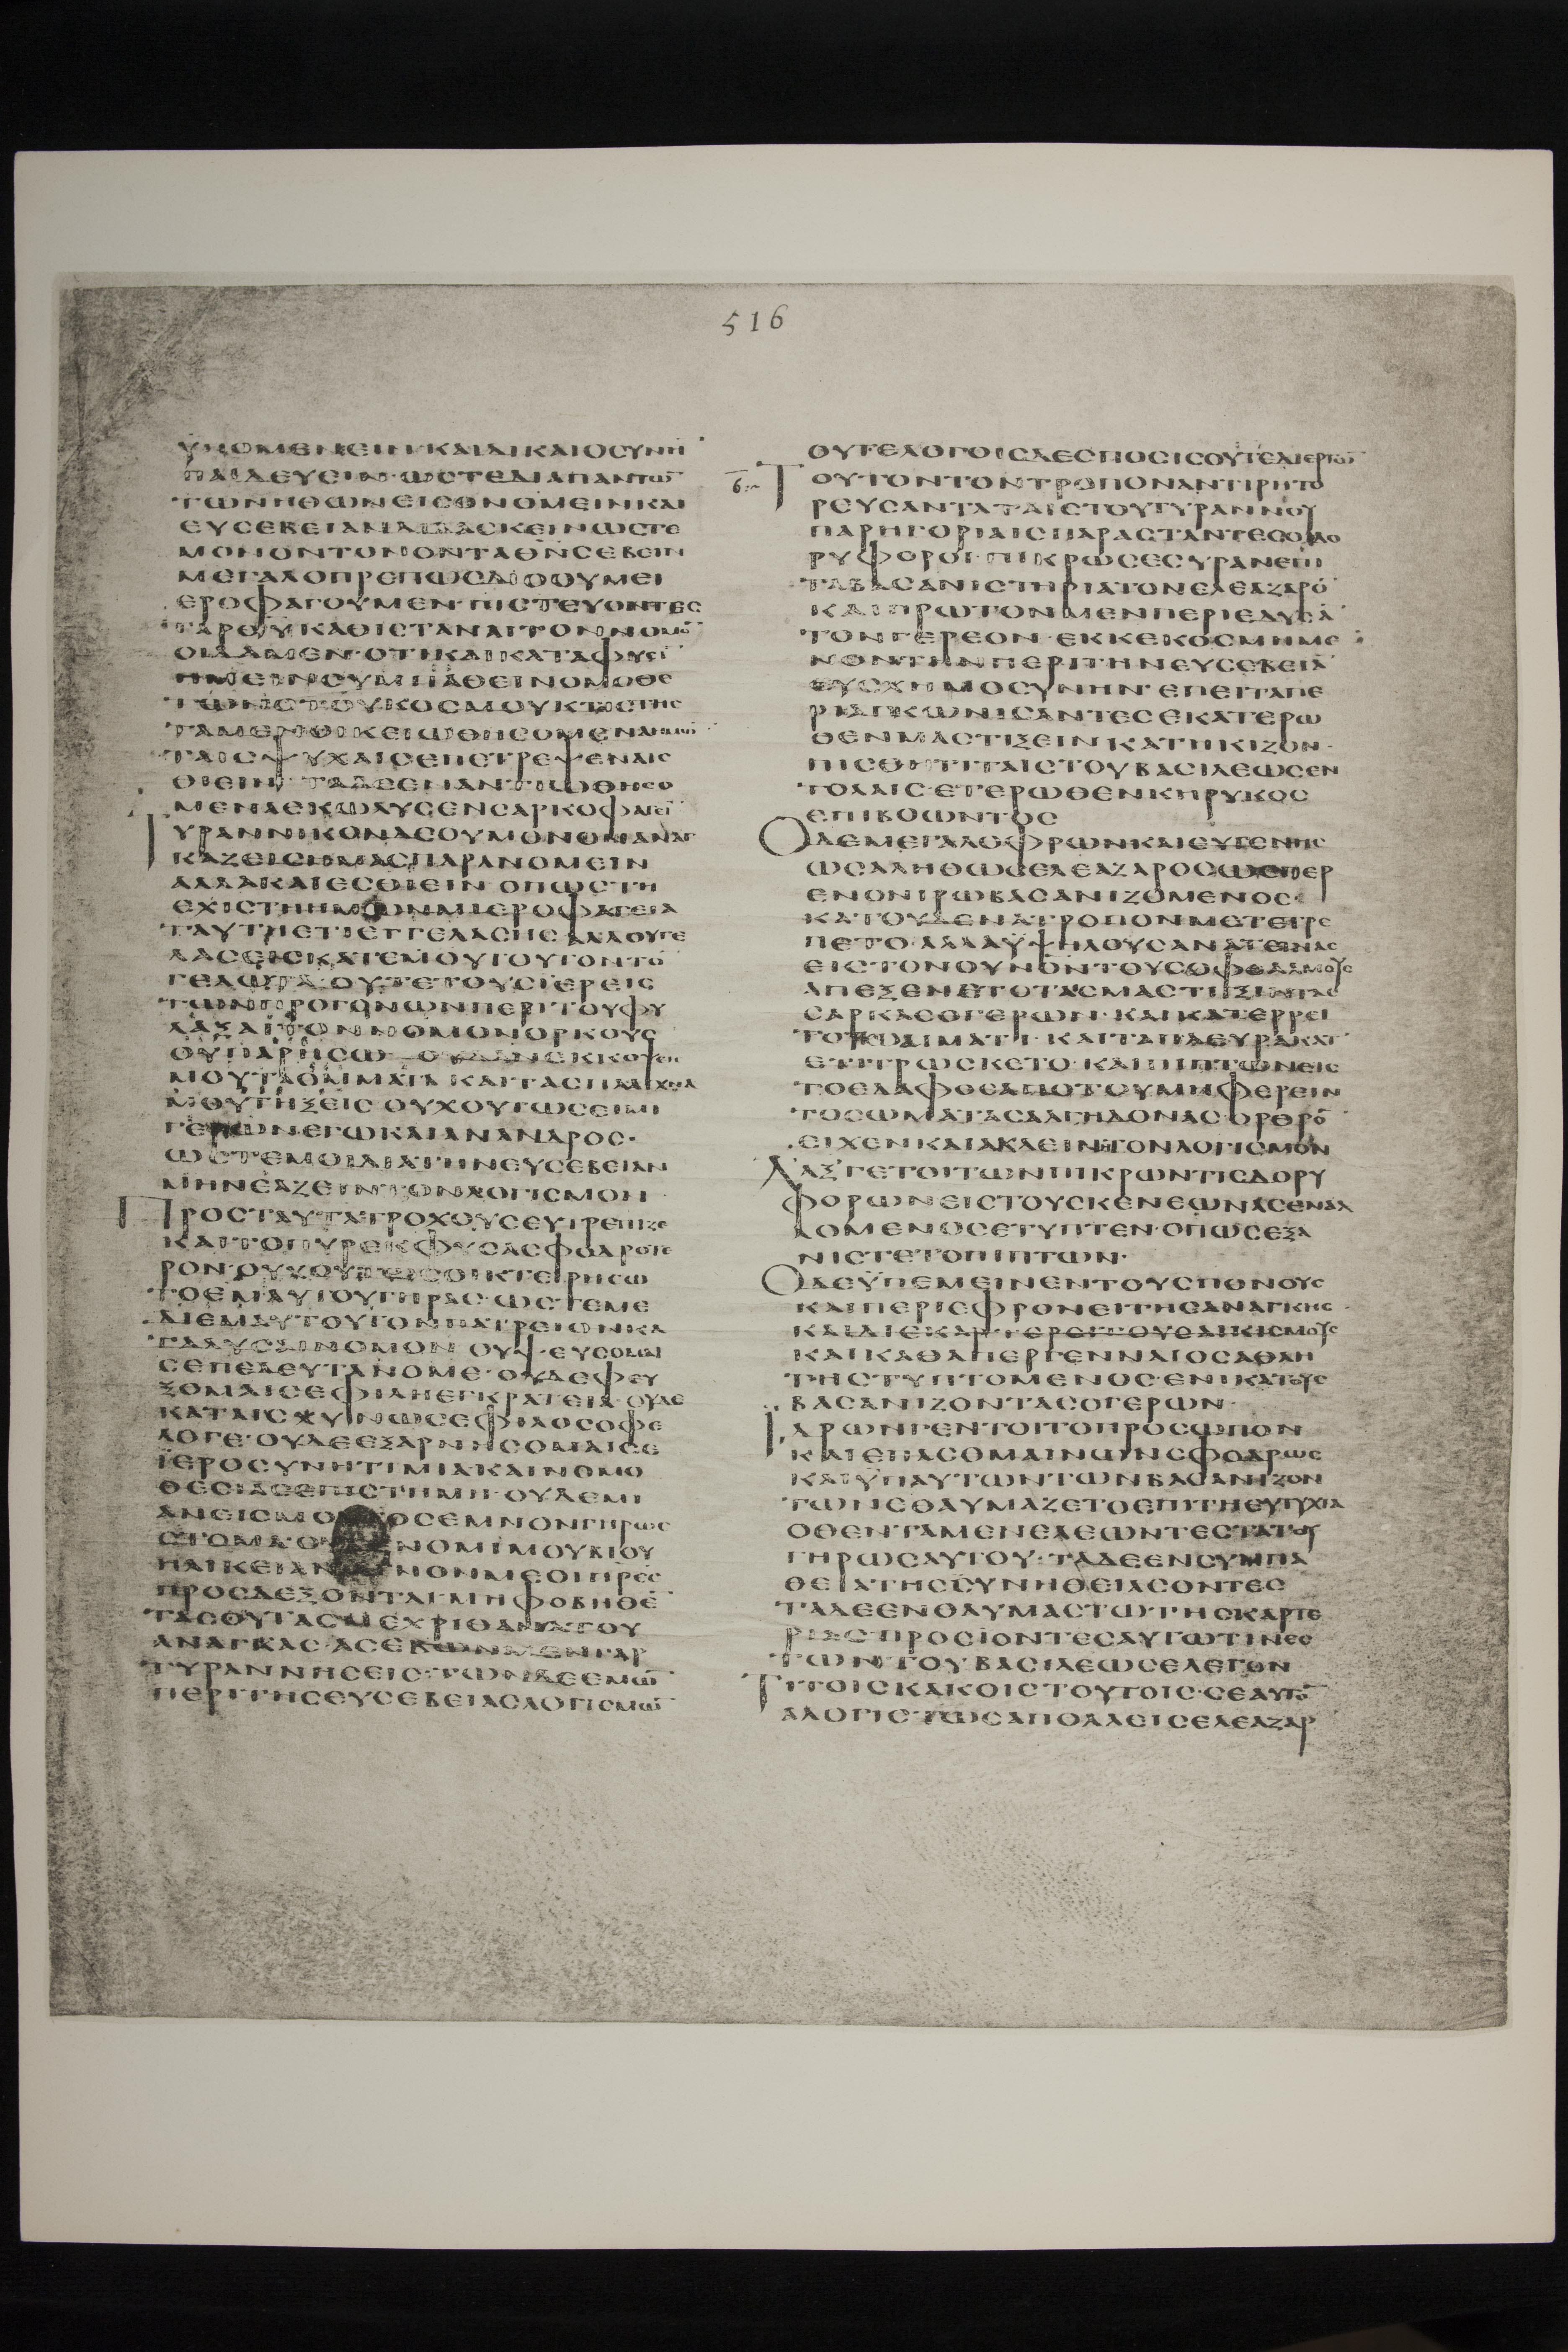 516
ΥΠΟΜΕΝΕΙΝΚΑΙΔΙΚΑΙΟϹΥΝΗ
ΠΑΙΔΕΥϹΙΝ·ΩϹΤΕΔΙΑΠΑΝΤΩ̄
ΤΩΝΗΘΩΝΕΙϹΟΝΟΜΕΙΝΚΑΙ
ΕΥϹΕΒΕΙΑΝΔΙΔΑϹΚΕΙΝΩϹΤΕ
ΜΟΝΟΝΤΟΝΟΝΤΑΘΝϹΕΒΕΙΝ
ΜΕΓΑΛΟΠΡΕΠΩϹΔΙΟΟΥΜΕΙ
ΕΡΟΦΑΓΟΥΜΕΝ·ΠΙϹΤΕΥΟΝΤΕϹ
ΓΑΡΘΥΚΑΘΙϹΤΑΝΑΙΤΟΝΝΟΜΟ̄
ΟΙΔΑΜΕΝ·ΟΤΙΚΑΙΚΑΤΑΦΥϹῙ
ΗΜΕΙΝϹΥΜΠΑΘΕΙΝΟΜΟΘΕ
ΤΩΝΟΤΟΥΚΟϹΜΟΥΚΤΙϹΤΗϹ
ΤΑΜΕΝΟΙΚΕΙΩΘΗϹΟΜΕΝΑΗΜΩ̄
ΤΑΙϹΨΥΧΑΙϹΕΠΕΤΡΕΨΕΝΑΙϹ
ΘΙΕΙΝ·ΤΑΔΕΕΝΑΝΤΙΩΘΗϹΟ
ΜΕΝΑΕΚΩΛΥϹΕΝϹΑΡΚΟΦΑΓΕῙ
ΤΥΡΑΝΝΙΚΟΝΔΕΟΥΜΟΝΟΝΑΝΑΓ
ΚΑΖΕΙϹΗΜΑϹΠΑΡΑΝΟΜΕΙΝ
ΑΛΛΑΚΑΙΕϹΘΙΕΙΝ·ΟΠΩϹΤΗ
ΕΧΙϹΤΗΗΜΩΝΜΙΕΡΟΦΑΓΕΙΑ
ΤΑΥΤΗΕΤΙΕΓΓΕΛΑϹΗϹΑΛΛΟΥΓΕ
ΛΑϹΕΙϹΚΑΤΕΜΟΥΤΟΥΤΟΝΤΟ̄
ΓΕΛΩΤΑ·ΟΥΤΕΤΟΥϹΙΕΡΕΙϹ
ΤΩΝΠΡΟΓΟΝΩΝΠΕΡΙΤΟΥΦΥ
ΛΑΞΑΙΤΟΝΝΟΜΟΝΟΡΚΟΥϹ
ΟΥΠΑΡΗϹΩ·ΟΥΔΑΝΕΚΚΟΨΕΙϹ
ΜΟΥΤΑΟΜΜΑΤΑΚΑΙΤΑϹΠΛΑΓΧΝΑ
ΜΟΥΤΗΞΕΙϹ·ΟΥΧΟΥΤΩϹΕΙΜΙ
ΓΕΡΩΝΕΓΩΚΑΙΑΝΑΝΔΡΟϹ·
ΩϹΤΕΜΟΙΔΙΑΤΗΝΕΥϹΕΒΕΙΑΝ
ΜΗΝΕΑΖΕΙΝΤΟΝΛΟΓΙϹΜΟΝ
ΠΡΟϹΤΑΥΤΑΤΡΟΧΟΥϹΕΥΤΡΕΠΙΖΕ
ΚΑΙΤΟΠΥΡΕΚΦΥϹΑϹΦΟΔΡΟΤΕ
ΡΟΝ·ΟΥΧΟΥΤΩϹΟΙΚΤΕΙΡΗϹΩ
ΤΟΕΜΑΥΤΟΥΓΗΡΑϹ·ΩϹΤΕΜΕ
ΔΙΕΜΑΥΤΟΥΤΟΝΠΑΤΡΕΙΟΝΚΑ
ΤΑΛΥϹΑΙΝΟΜΟΝ·ΟΥΨΕΥϹΟΜΑΙ
ϹΕΠΕΔΕΥΤΑΝΟΜΕ·ΟΥΔΕΦΕΥ
ΞΟΜΑΙϹΕΦΙΛΗΕΓΚΡΑΤΕΙΑ·ΟΥΔΕ
ΚΑΤΑΙϹΧΥΝΩϹΕΦΙΛΟϹΟΦΕ
ΛΟΓΕ·ΟΥΔΕΕΞΑΡΝΗϹΟΜΑΙϹΕ
ΪΕΡΟϹΥΝΗΤΙΜΙΑΚΑΙΝΟΜΟ
ΘΕϹΙΑϹΕΠΙϹΤΗΜΗ·ΟΥΔΕΜΙ
ΑΝΕΙϹΜΟΥ ΤΟϹΕΜΝΟΝΓΗΡΩϹ
ϹΤΟΜΑ·Ο ΝΟΜΙΜΟΥΒΙΟΥ
ΗΛΙΚΕΙΑΝ ΝΟΝΜΕΟΙΠΡΕϹ
ΠΡΟϹΔΕΞΟΝΤΑΙ·ΜΗΦΟΒΗΘΕ̄
ΤΑϹΘΥΤΑϹΜΕΧΡΙΘΑΝΑΤΟΥ
ΑΝΑΓΚΑϹ·ΑϹΕΒΩΝΜΕΝΓΑΡ
ΤΥΡΑΝΝΗϹΕΙϹ·ΤΩΝΔΕΕΜΩ̄
ΠΕΡΙΤΗϹΕΥϹΕΒΕΙΑϹΛΟΓΙϹΜΩ̄
ΟΥΤΕΛΟΓΟΙϹΔΕϹΠΟϹΙϹΟΥΤΕΔΙΕΡΓΩ̄
ΤΟΥΤΟΝΤΟΝΤΡΟΠΟΝΑΝΤΙΡΗΤΟ
ΡΕΥϹΑΝΤΑΤΑΙϹΤΟΥΤΥΡΑΝΝΟΥ
ΠΑΡΗΓΟΡΙΑΙϹΠΑΡΑϹΤΑΝΤΕϹΟΙΔΟ
ΡΥΦΟΡΟΙ·ΠΙΚΡΩϹΕϹΥΡΑΝΕΠΙ
ΤΑΒΑϹΑΝΙϹΤΗΡΙΑΤΟΝΕΛΕΑΖΑΡΟ̄
ΚΑΙΠΡΩΤΟΝΜΕΝΠΕΡΙΕΔΥϹᾹ
ΤΟΝΓΕΡΕΟΝ·ΕΚΚΕΚΟϹΜΗΜΕ
ΝΟΝΤΗΝΠΕΡΙΤΗΝΕΥϹΕΒΕΙᾹ
ΕΥϹΧΗΜΟϹΥΝΗΝ·ΕΠΕΙΤΑΠΕ
ΡΙΑΓΚΩΝΙϹΑΝΤΕϹΕΚΑΤΕΡΩ
ΘΕΝΜΑϹΤΙΞΕΙΝΚΑΤΗΚΙΖΟΝ·
ΠΙϹΘΗΤΙΤΑΙϹΤΟΥΒΑϹΙΛΕΩϹΕΝ
ΤΟΛΑΙϹ·ΕΤΕΡΩΘΕΝΚΗΡΥΚΟϹ
ΕΠΙΒΟΩΝΤΟϹ
ΟΔΕΜΕΓΑΛΟΦΡΩΝΚΑΙΕΥΓΕΝΗϹ
ΩϹΑΛΗΘΩϹΕΛΕΑΖΑΡΟϹΩϹΠΕΡ
ΕΝΟΝΙΡΩΒΑϹΑΝΙΖΟΜΕΝΟϹ·
ΚΑΤΟΥΔΕΝΑΤΡΟΠΟΝΜΕΤΕΤΡΕ
ΠΕΤΟ·ΑΛΛΑΫΨΗΛΟΥϹΑΝΑΤΕΙΝΑϹ
ΕΙϹΤΟΝΟΥΝΟΝΤΟΥϹΟΦΘΑΛΜΟΥϹ
ΑΠΕΞΕΝΕΤΟΤΑΙϹΜΑϹΤΙΞΙΝΤΑϹ
ϹΑΡΚΑϹΟΓΕΡΩΝ·ΚΑΙΚΑΤΕΡΡΕΙ
ΤΟΥΚΟΔΙΜΑΤΙ·ΚΑΙΤΑΠΛΕΥΡΑΚΑΤ
ΕΤΙΤΡΩϹΚΕΤΟ·ΚΑΙΠΙΠΤΩΝΕΙϹ
ΤΟΕΔΑΦΟϹΑΠΟΤΟΥΜΗΦΕΡΕΙΝ
ΤΟϹΩΜΑΤΑϹΑΛΓΗΔΟΝΑϹ·ΟΡΘΡΟ̄
ΕΙΧΕΝΚΑΙΑΚΛΕΙΝΗΤΟΝΛΟΓΙϹΜΟΝ
ΛΑΞΓΕΤΟΙΤΩΝΠΙΚΡΩΝΤΙϹΔΟΡΥ
ΦΟΡΩΝΕΙϹΤΟΥϹΚΕΝΕΩΝΑϹΕΝΑΛ
ΛΟΜΕΝΟϹΕΤΥΠΤΕΝ·ΟΠΩϹΕΞΑ
ΝΙϹΤΕΤΟΠΙΠΤΩΝ·
ΟΔΕΫΠΕΜΕΙΝΕΝΤΟΥϹΠΟΝΟΥϹ
ΚΑΙΠΕΡΙΕΦΡΟΝΕΙΤΗϹΑΝΑΓΚΗϹ
ΚΑΙΔΙΕΚΑΡΤΕΡΕΙΤΟΥϹΑΙΚΙϹΜΟΥϹ
ΚΑΙΚΑΘΑΠΕΡΓΕΝΝΑΙΟϹΑΘΛΗ
ΤΗϹΤΥΠΤΟΜΕΝΟϹ·ΕΝΙΚΑΤΟΥϹ
ΒΑϹΑΝΙΖΟΝΤΑϹΟΓΕΡΩΝ·
ΙΔΡΩΝΓΕΝΤΟΙΤΟΠΡΟϹΩΠΟΝ
ΚΑΙΕΠΑϹΟΜΑΙΝΩΝϹΦΟΔΡΩϹ
ΚΑΙΫΠΑΥΤΩΝΤΩΝΒΑϹΑΝΙΖΟΝ
ΤΩΝΕΘΑΥΜΑΖΕΤΟΕΠΙΤΗΕΥΤΥΧΙΑ
ΟΘΕΝΤΑΜΕΝΕΛΕΩΝΤΕϹΤΑΤΟΥ
ΓΗΡΩϹΑΥΤΟΥ·ΤΑΔΕΕΝϹΥΜΠΑ
ΘΕΙΑΤΗϹϹΥΝΗΘΕΙΑϹΟΝΤΕϹ
ΤΑΔΕΕΝΘΑΥΜΑϹΤΩΤΗϹΚΑΡΤΕ
ΡΙΑϹΠΡΟϹΙΟΝΤΕϹΑΥΤΩΤΙΝΕϹ
ΤΩΝΤΟΥΒΑϹΙΛΕΩϹΕΛΕΓΟΝ
ΤΙΤΟΙϹΚΑΚΟΙϹΤΟΥΤΟΙϹ·ϹΕΑΥΤΟ̄
ΑΛΟΓΙϹΤΩϹΑΠΟΛΛΕΙϹΕΛΕΑΖΑΡ